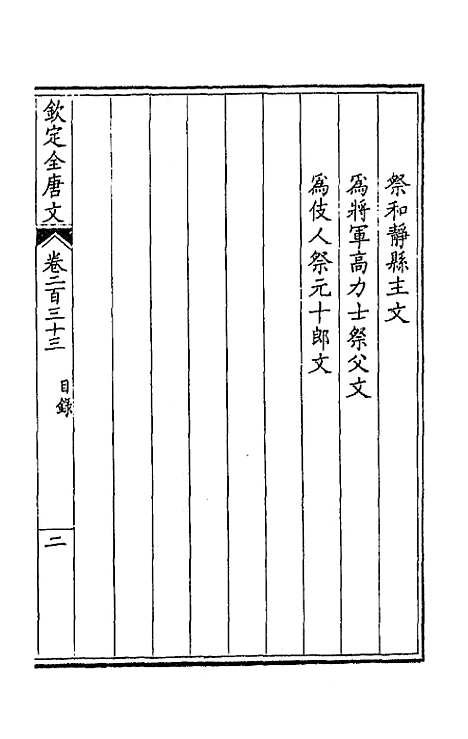 祭和靜縣主文
爲將軍高力士祭父文
爲伎人祭元十郎文
欽定全唐文
卷二百三十三
目錄
二